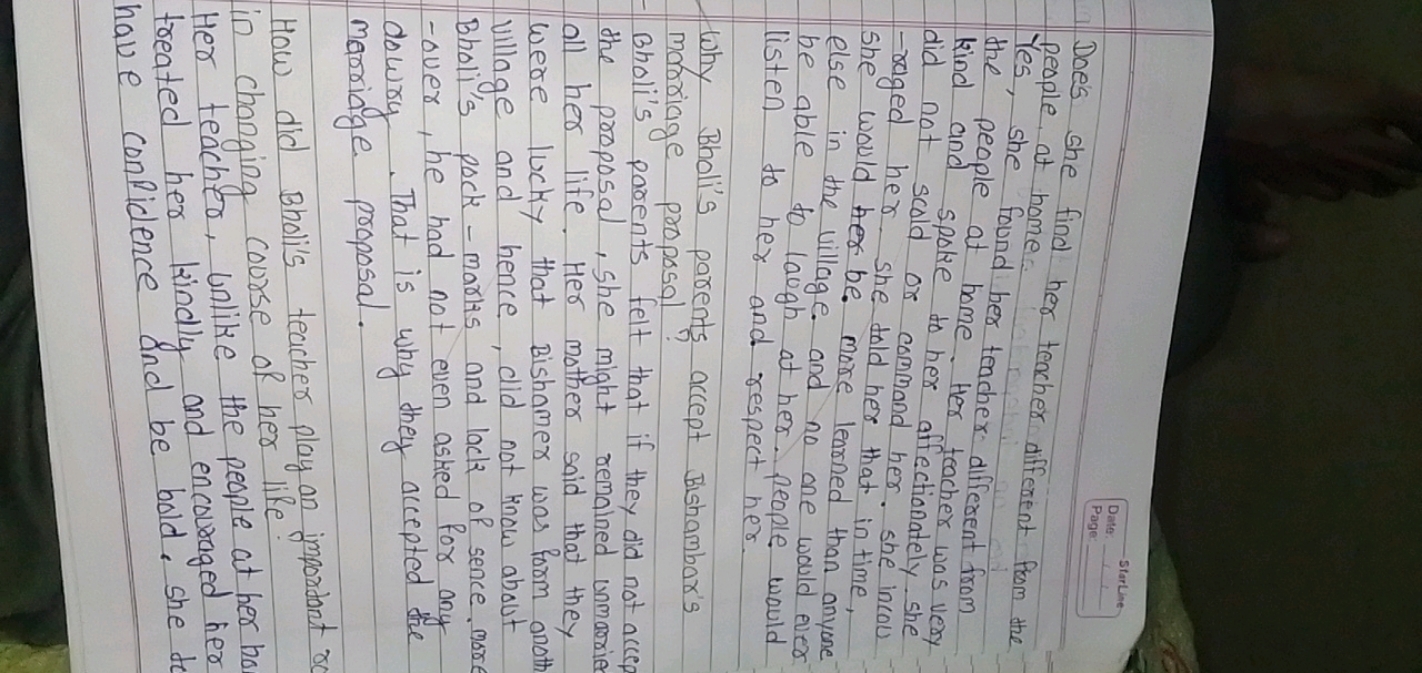 StarLine
Date: / /
Page:
Does she find her teacher different from the
people at home.
Yes, she found her teacher different from
the people at home. Her teacher was very
kind and spoke to her affectionately she
did not scold or command her. she incou
-raged her she told her that in time,
she would her be more learned than anyone
else in the village. and no one would ever
be able to laugh at her. people would
listen to her and respect her.
Why Bholi's parents accept Bishambar's
marriage proposal?
- Bholi's parents felt that if they did not accep
the proposal, she might remained unmarrie
all her life. Her mother said that they
were lucky that Bishamer was form anoth
village and hence, did not know about
Bholi's pock-marks and lack of sence. more
-over, he had not even asked for any
dowry. That is why they accepted the
marriage proposal.
How did Bholi's teacher play an important ro
in changing course of her life?
Her teacher, unlike the people at her ho
treated her kindly and encouraged her
have confidence and be bold. she te